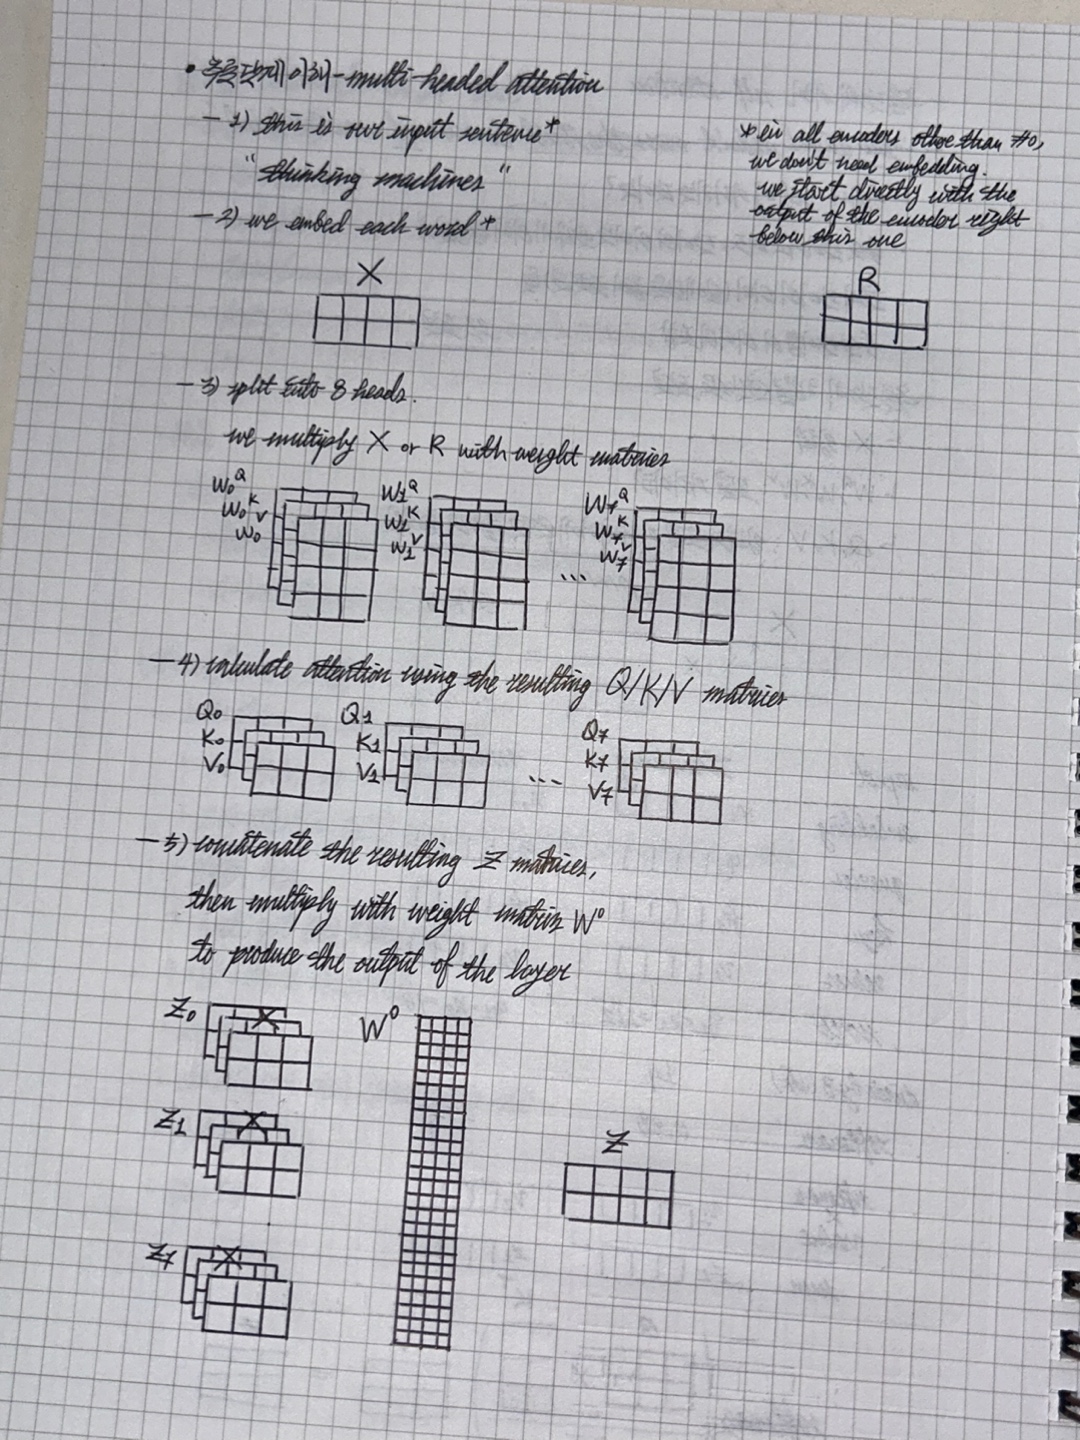 • 흐름단계이해-multi-headed attention
- 1) this is our input sentence*
"thinking machines"
- 2) we embed each word*
*in all encoders other than #0,
we don't need embedding.
we start directly with the
output of the encoder right
below this one
X
R
- 3) split into 8 heads.
we multiply X or R with weight matrices
W0^Q W1^Q W7^Q
W0^K W1^K W7^K
W0^V W1^V ... W7^V
- 4) calculate attention using the resulting Q/K/V matrices
Q0 Q1 Q7
K0 K1 K7
V0 V1 ... V7
- 5) concatenate the resulting Z matrices,
then multiply with weight matrix W^0
to produce the output of the layer
Z0 W^0
Z1
Z
Z7